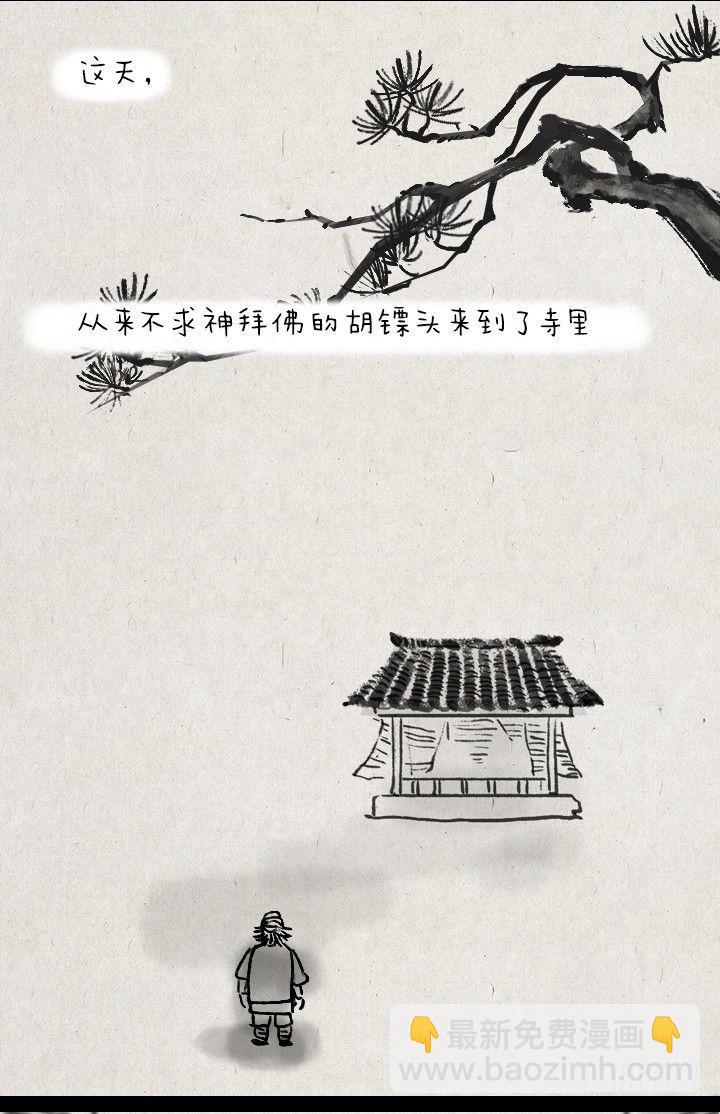 这天，
从来不求神拜佛的胡镖头来到了寺里
👇最新免费漫画👇
www.baozimh.com